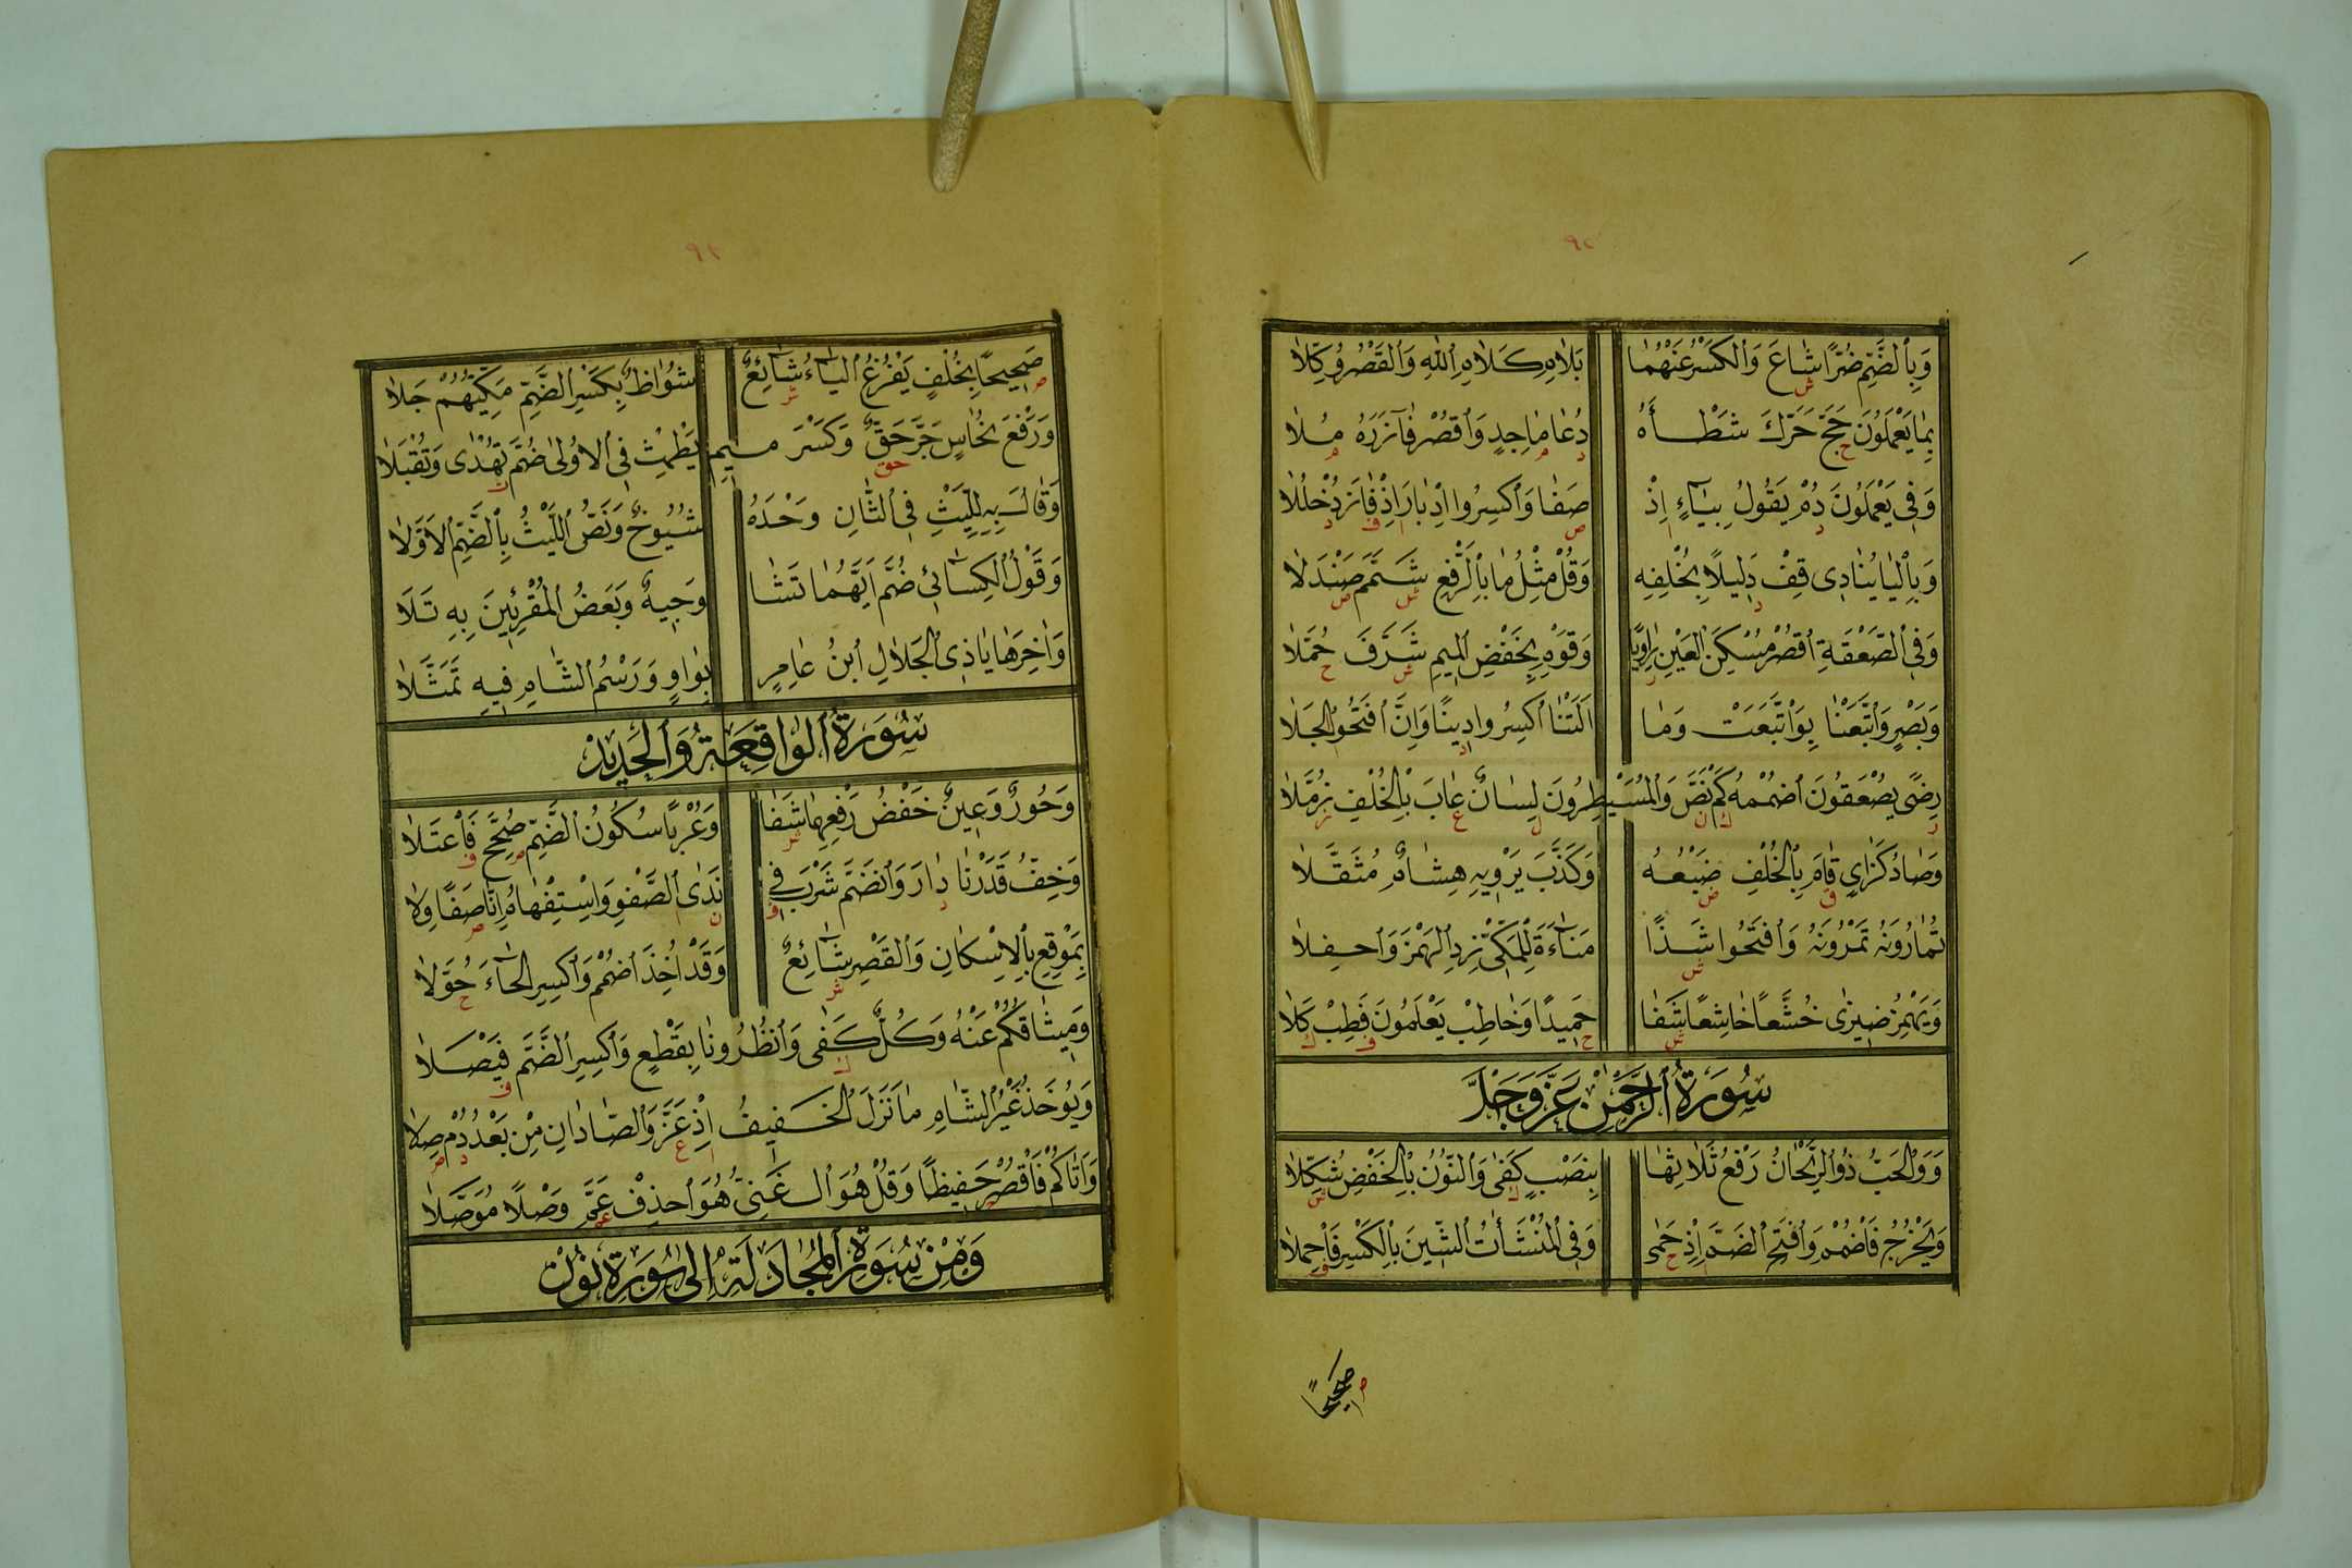 ٩٢
وَبِالضَّمِّ ضُرًّا شَاعَ وَالْكَسْرُ عَنْهُمَا بِلَامِ كَلَامِ اللهِ وَالْقَصْرُ وُكِّلَا
بِمَا يَعْمَلُونَ حَجَّ حَرَّكَ شَطْأَهُ دُعَا مَاجِدٍ وَاقْصُرْ فَآزَرَهُ مُلَا
وَفِي يَعْمَلُونَ دُمْ يَقُولُ بِيَاءٍ اِذْ صَفَا وَاكْسِرُوا اِدْبَارَ اِذْ فَازَ دُخْلُلَا
وَبِالْيَا يُنَادِى قِفْ دَلِيلًا بِخُلْفِهِ وَقُلْ مِثْلُ مَا بِالرَّفْعِ شَمَّمَ صَنْدَلَا
وَفِي الصَّعْقَةِ اقْصُرْ مُسْكِنَ الْعَيْنِ رَاوِيًا وَقَوْمِ بِخَفْضِ الْمِيمِ شَرَّفَ حُمَّلَا
وَبَصْرٍ وَاَتْبَعْنَا بِوَاتَّبَعَتْ وَمَا اَلَتْنَا اكْسِرُوا دِينًا وَاِنَّ افْتَحُوا الْجَلَا
رِضًى يَصْعَقُونَ اضْمُمْهُ كَمْ نَصَّ وَالْمُسَيْطِرُونَ لِسَانٌ عَابَ بِالْخُلْفِ زُمَّلَا
وَصَادٌ كَزَايٍ قَامَ بِالْخُلْفِ ضَبْعُهُ وَكَذَّبَ يَرْوِيهِ هِشَامٌ مُثَقَّلَا
تُمَارُونَهُ تَمْرُونَهُ وَافْتَحُوا شَذًا مَنَاءَةَ لِلْمَكِّي زِدِ الْهَمْزَ وَاحْفِلَا
وَيَهْمِزُ ضِيزَى خُشَّعًا خَاشِعًا شَفَا حَمِيدًا وَخَاطِبْ يَعْلَمُونَ فَطِبْ كَلَا
سُورَةُ الرَّحْمٰنِ عَزَّ وَجَلَّ
وَوَالْحَبُّ ذُو الرَّيْحَانُ رَفْعُ ثَلَاثِهَا بِنَصْبٍ كَفَى وَالنُّونُ بِالْخَفْضِ شُكِّلَا
وَيَخْرُجُ فَاضْمُمْ وَافْتَحِ الضَّمَّ اِذْ حَمَى وَفِي الْمُنْشَأَتُ الشِّينَ بِالْكَسْرِ فَاحْمِلَا
صَحِيحًا
٩٢
صَحِيحًا بِخُلْفٍ يَفْرُغُ الْيَاءُ شَائِعٌ شُوَاظٌ بِكَسْرِ الضَّمِّ مَكِّيُّهُمْ جَلَا
وَرَفْعَ نُحَاسٍ جَرَّ حَقٌّ وَكَسْرَ مِيمِ يَطْمِثْ فِي الْاُولَى ضُمَّ تُهْدَى وَتُقْبَلَا
وَقَالَ بِهِ لِلَّيْثِ فِي الثَّانِ وَحْدَهُ شُيُوخٌ وَنَصُّ اللَّيْثُ بِالضَّمِّ الْاَوَّلَا
وَقَوْلُ الْكِسَائِي ضُمَّ اَيَّهُمَا تَشَا وَجِيهٌ وَبَعْضُ الْمُقْرِئِينَ بِهِ تَلَا
وَاٰخِرَهَا يَا ذِي الْجَلَالِ ابْنُ عَامِرٍ بِوَاوٍ وَرَسْمُ الشَّامِ فِيهِ تَمَثَّلَا
سُورَةُ الْوَاقِعَةِ وَالْحَدِيدِ
وَحُورٌ وَعِينٌ خَفْضُ رَفْعِهِمَا شَفَا وَعُرْبًا سُكُونُ الضَّمِّ صُحِّحَ فَاعْتَلَا
وَخِفُّ قَدَرْنَا دَارَ وَانْضَمَّ شَرْبَ فِي نَدَى الصَّفْوِ وَاسْتِفْهَامُ اِنَّا صَفَا وِلَا
بِمَوْقِعِ بِالْاِسْكَانِ وَالْقَصْرِ شَائِعٌ وَقَدْ اَخَذَ اضْمُمْ وَاكْسِرِ الْخَاءَ حُوَّلَا
وَمِيثَاقُكُمْ عَنْهُ وَكُلٌّ كَفَى وَاَنْظِرُونَا بِقَطْعٍ وَاكْسِرِ الضَّمَّ فَيْصَلَا
وَيُوخَذُ غَيْرُ الشَّامِ مَا نَزَلَ الْخَفِيفُ اِذْ عَزَّ وَالصَّادَانِ مِنْ بَعْدُ دُمْ صِلَا
وَاٰتَاكُمُ فَاقْصُرْ حَفِيظًا وَقُلْ هُوَ الْغَنِيُّ هُوَ احْذِفْ عَمَّ وَصْلًا مُوَصَّلَا
وَمِنْ سُورَةِ الْمُجَادَلَةِ اِلَى سُورَةِ نُونْ